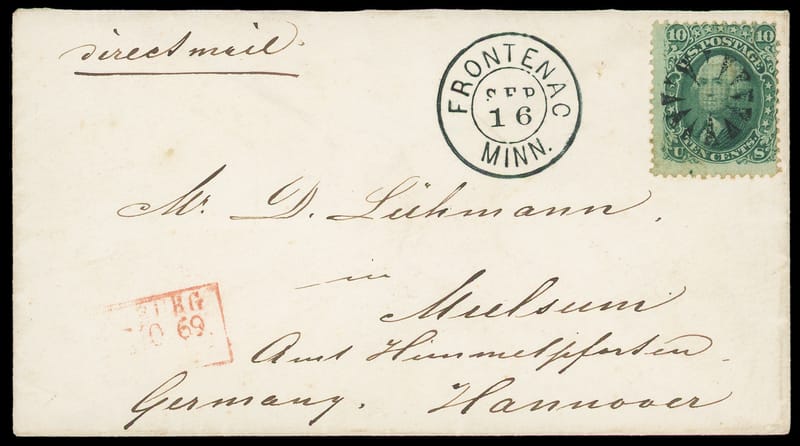 direct mail.
FRONTENAC
SEP
16
MINN.
10 U.S. POSTAGE 10
TEN CENTS
U S
Mr. D. Lühmann.
in
Mulsum
Amt Himmelpforten.
Germany. Hannover
BURG
69